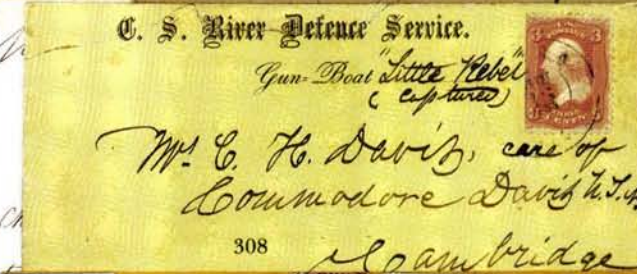 C. S. River Defence Service.
Gun=Boat "Little Rebel"
(captured)
Mrs C. H. Davis, care of
Commodore Davis U.S.N.
308
Cambridge
3 3